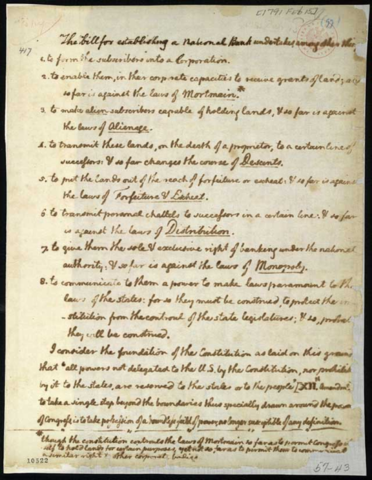 1791 Feb 15
417
The bill for establishing a National Bank undertakes, among other things
1. to form the subscribers into a Corporation.
2. to enable them, in their corporate capacities to receive grants of land; &
so far is against the laws of Mortmain.*
3. to make alien subscribers capable of holding lands, & so far is against
the laws of Alienage.
4. to transmit these lands, on the death of a proprietor, to a certain line of
successors: & so far changes the course of Descents.
5. to put the lands out of the reach of forfeiture or escheat: & so far is against
the laws of Forfeiture & Escheat.
6. to transmit personal chattels to successors in a certain line: & so far
is against the laws of Distribution.
7. to give them the sole & exclusive right of banking under the national
authority: & so far is against the laws of Monopoly.
8. to communicate to them a power to make laws paramount to the
laws of the states: for so they must be construed, to protect the
-stitution from the controul of the state legislatures; & so, probably
they will be construed.
I consider the foundation of the Constitution as laid on this ground
that "all powers not delegated to the U.S. by the Constitution, nor prohibited
by it to the states, are reserved to the states or to the people" [XII. amendmt.]
to take a single step beyond the boundaries thus specially drawn around the powers
of Congress, is to take possession of a boundless feild of power, no longer susceptible of any definition.
* though the constitution controuls the laws of Mortmain so far as to permit Congress
itself to hold lands for certain purposes, yet not so far as to permit them to communicate
a similar right to other corporate bodies.
10522
67-H3